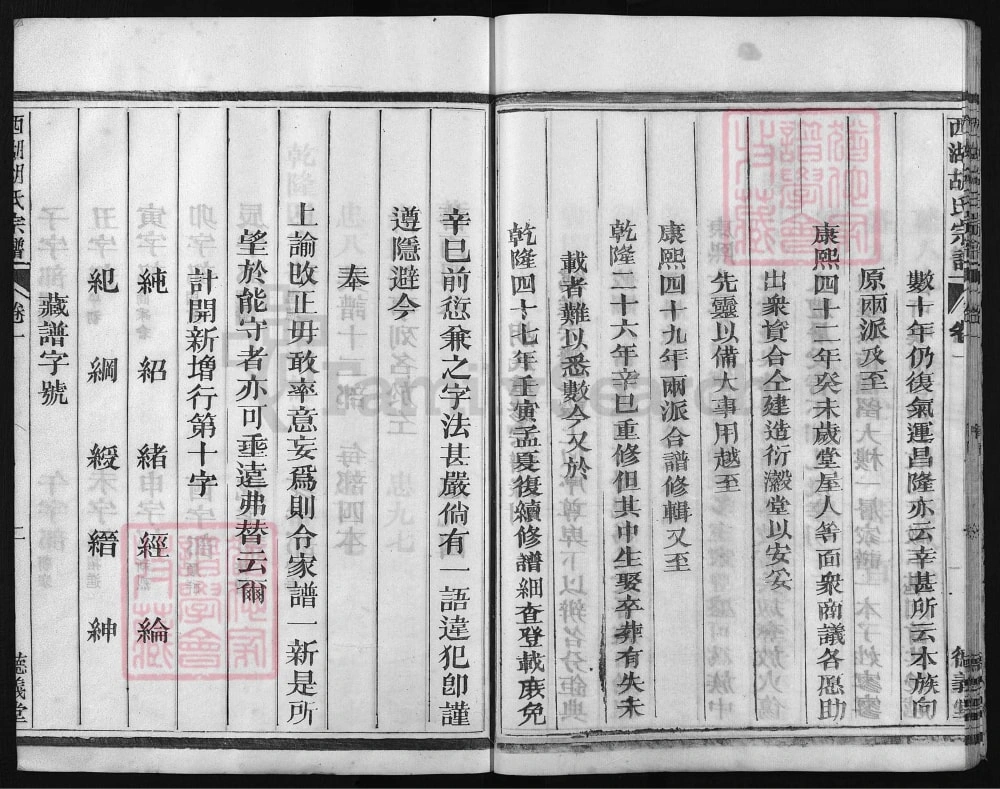 西湖胡氏宗譜
卷一
數十年仍復氣運昌隆亦云幸甚所云本族向
原兩派及至
康熙四十二年癸未歲堂屋人等面衆商議各愿助
出衆資合仝建造衍瀫堂以安妥
先靈以備大事用越至
康熙四十九年兩派合譜修輯又至
乾隆二十六年辛巳重修但其中生娶卒葬有失未
載者難以悉數今又於
乾隆四十七年壬寅孟夏復續修譜細查登載庻免
辛巳前愆兼之字法甚嚴倘有一語違犯卽謹
遵隱避今
奉
上諭改止毋敢率意妄爲則令家譜一新是所
望於能守者亦可垂遠弗替云爾
計開新增行第十字
純 紹 緒 經 綸
紀 綱 綬 縉 紳
藏譜字號
西湖胡氏宗譜
卷一
德義堂